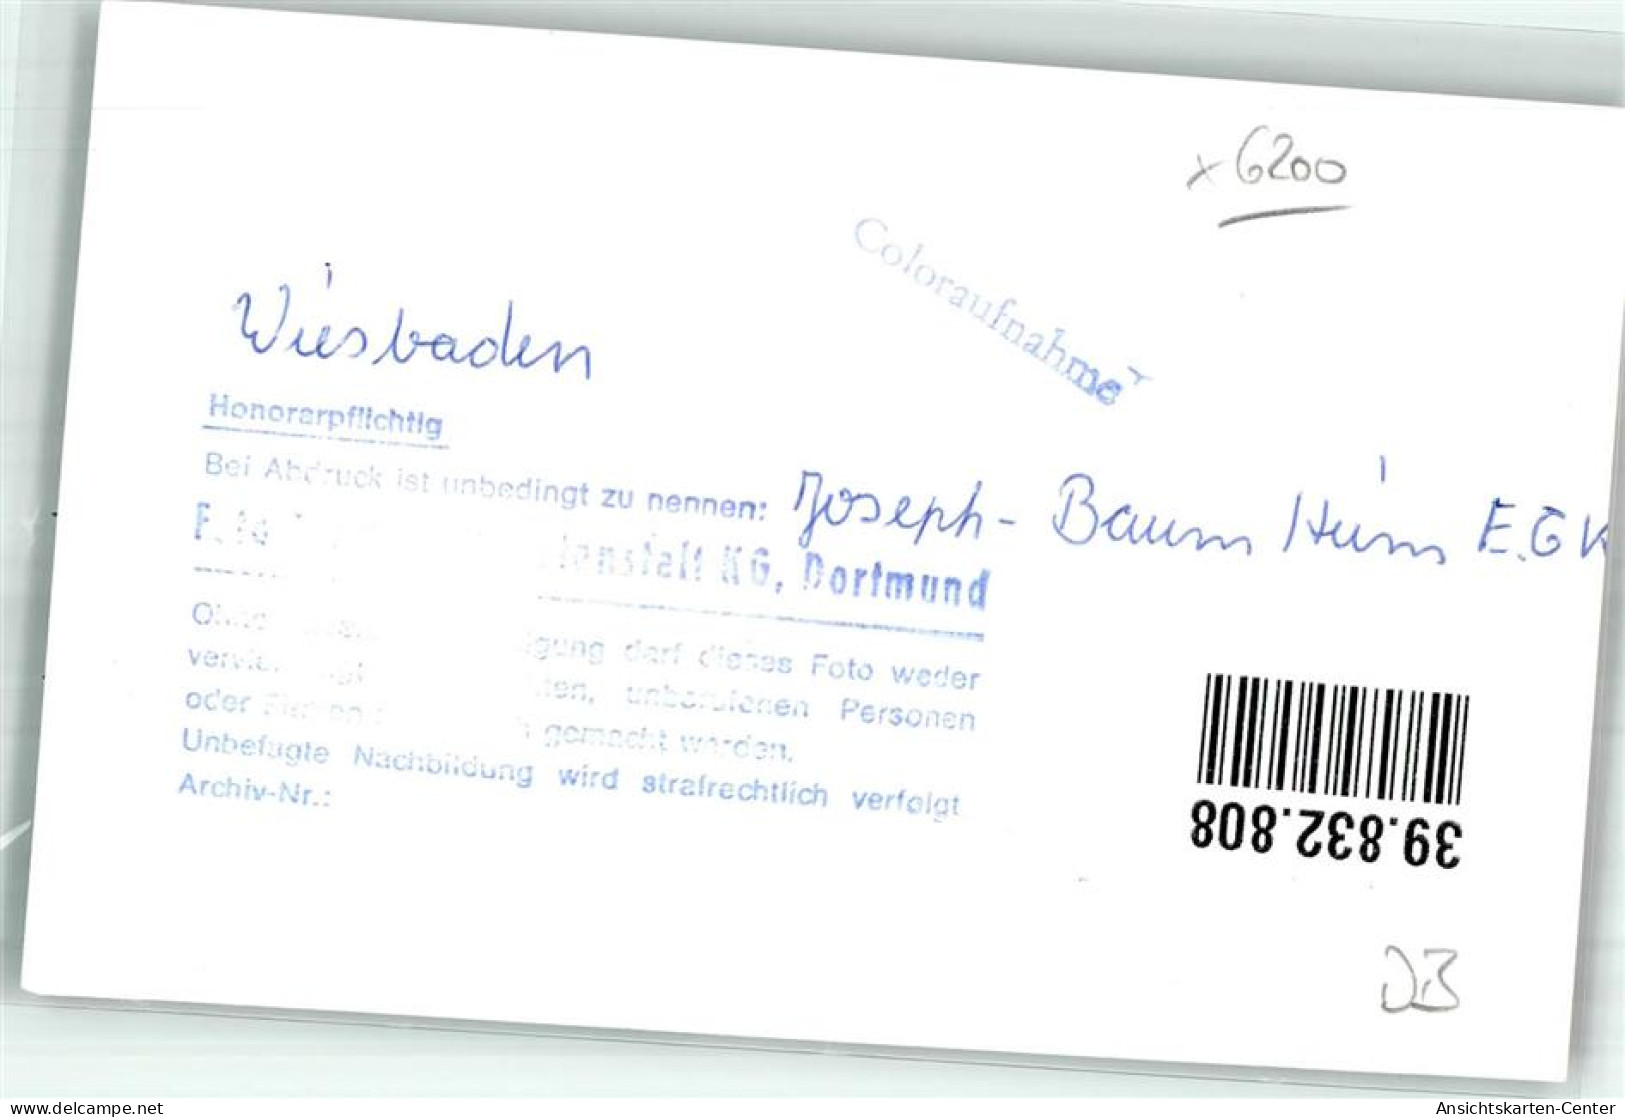 x 6200
Coloraufnahme
Wiesbaden
Honorarpflichtig
Bei Abdruck ist unbedingt zu nennen: Joseph-Baum Heim E.G K
KG, Dortmund
darf dieses Foto weder
unberufenen Personen
oder gemacht werden.
Unbefugte Nachbildung wird strafrechtlich verfolgt
Archiv-Nr.:
39.832.808
DB
www.delcampe.net
Ansichtskarten-Center